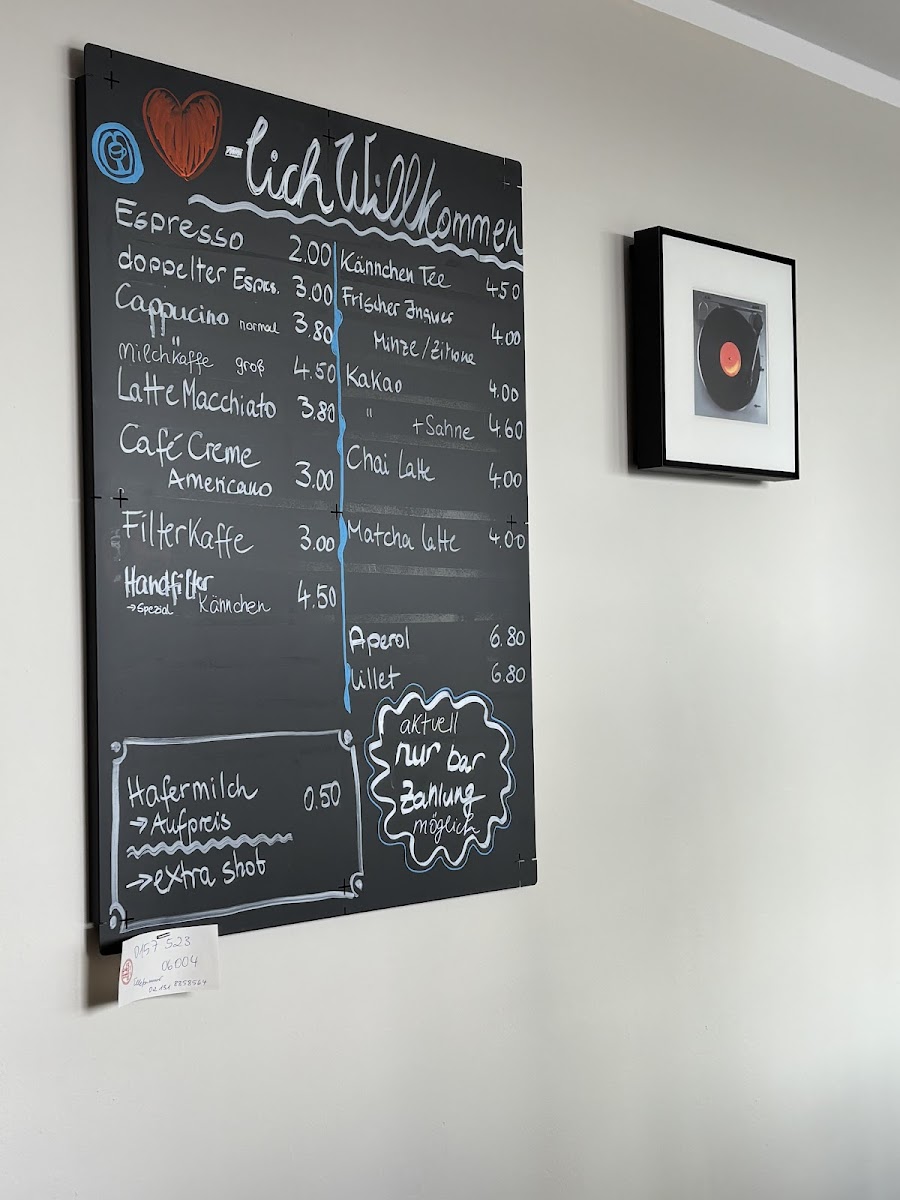 -lich Willkommen
Espresso 2.00
doppelter Espss. 3.00
Cappucino normal 3.80
Milchkaffe groß 4.50
Latte Macchiato 3.80
Café Creme
Americano 3.00
Filterkaffe 3.00
Handfilter
→Spezial Kännchen 4.50
Kännchen Tee 4.50
Frischer Ingwer
Minze/Zitrone 4.00
Kakao 4.00
" +Sahne 4.60
Chai Latte 4.00
Matcha Latte 4.00
Aperol 6.80
Lillet 6.80
aktuell
nur bar
Zahlung
möglich
Hafermilch 0.50
→Aufpreis
→extra shot
0157 523
06004